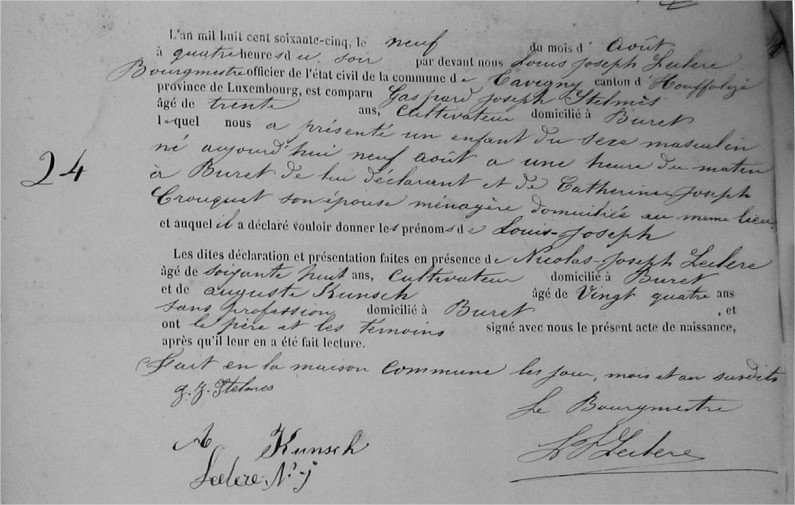 L'an mil huit cent soixante-cinq, le neuf du mois d' Août
à quatre heures du soir par devant nous Louis Joseph Leclere
Bourgmestre officier de l'état civil de la commune de Tavigny canton d' Houffalize
province de Luxembourg, est comparu Gaspard Joseph Stelmes
âgé de trente ans, Cultivateur domicilié à Buret
lequel nous a présenté un enfant du sexe masculin
né aujourd'hui neuf août a une heure du matin
24
à Buret de lui déclarant et de Catherine Joseph
Crouquet son épouse ménagère domiciliée au même lieu
et auquel il a déclaré vouloir donner les prénoms de Louis-Joseph
Les dites déclaration et présentation faites en présence de Nicolas-Joseph Leclere
âgé de soixante huit ans, cultivateur domicilié à Buret
et de Auguste Kunsch âgé de Vingt quatre ans
sans profession domicilié à Buret , et
ont le père et les témoins signé avec nous le présent acte de naissance,
après qu'il leur en a été fait lecture.
Fait en la maison commune les jour, mois et an susdits
g. J. Stelmes
Le Bourgmestre
A Kunsch
L J Leclere
Leclere N-J